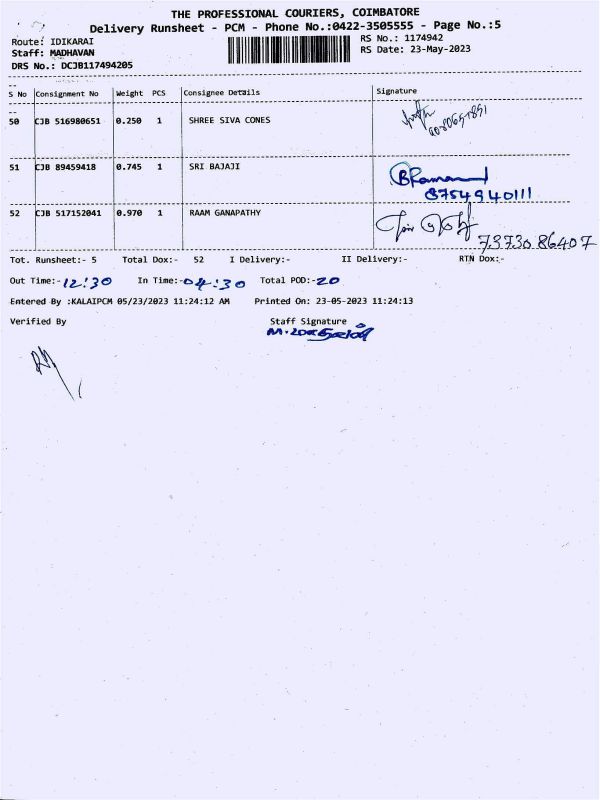 THE PROFESSIONAL COURIERS, COIMBATORE
Delivery Runsheet - PCM - Phone No.:0422-3505555 - Page No.:5
Route: IDIKARAI RS No.: 1174942
Staff: MADHAVAN RS Date: 23-May-2023
DRS No.: DCJB117494205
S No Consignment No Weight PCS Consignee Details Signature
50 CJB 516980651 0.250 1 SHREE SIVA CONES
51 CJB 89459418 0.745 1 SRI BAJAJI
8754940111
52 CJB 517152041 0.970 1 RAAM GANAPATHY
73730 86407
Tot. Runsheet:- 5 Total Dox:- 52 I Delivery:- II Delivery:- RTN Dox:-
Out Time:-12:30 In Time:-04:30 Total POD:-20
Entered By :KALAIPCM 05/23/2023 11:24:12 AM Printed On: 23-05-2023 11:24:13
Verified By Staff Signature